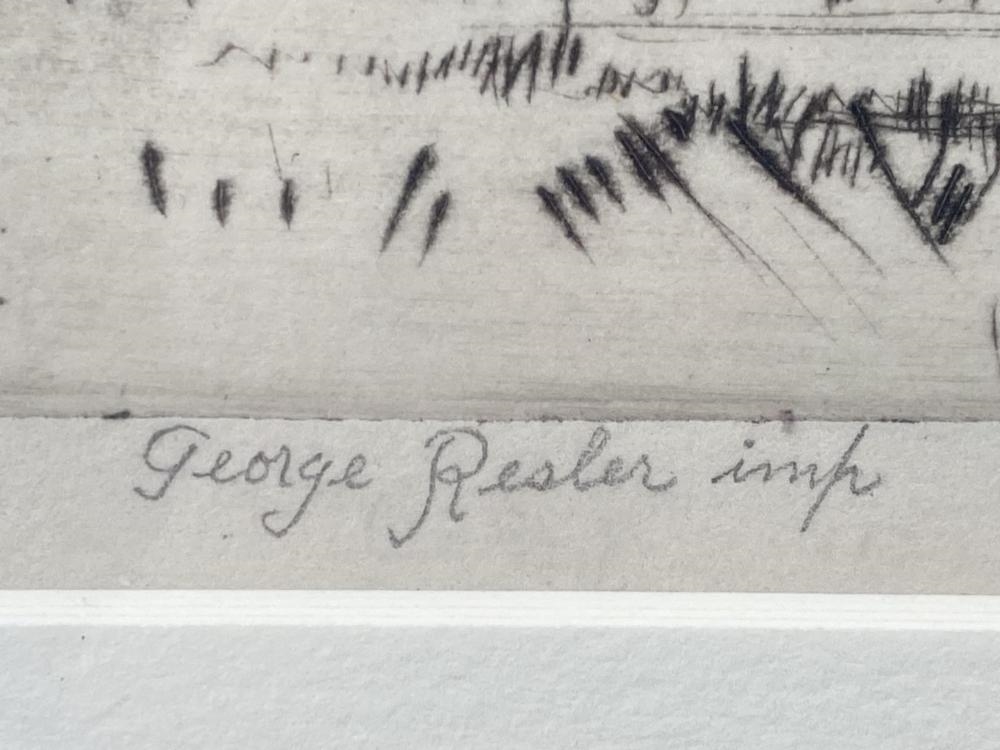 George Resler imp